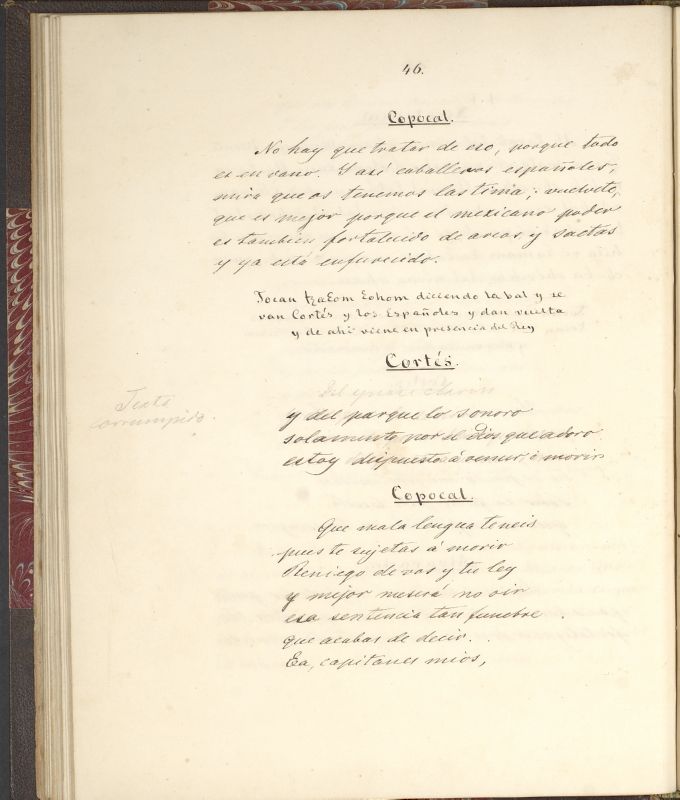 46.
Copocal.
No hay que tratar de eso, porque todo
es en vano. Y asi caballeros españoles,
mira que os tenemos lastima; vuelvete,
que es mejor porque el mexicano poder
es tambien fortalecido de arcos y saetas
y ya está enfurecido.
Tocan tzaEom Eohom diciendo la bal y se
van Cortés y los Españoles y dan vuelta
y de ahi viene en presencia del Rey
Cortés.
del clarin
Texto
corrumpido.
y del parque lo sonoro
solamente por el Dios que adoro
estoy dispuesto á vencer ó morir
Copocal.
Que mala lengua teneis
pues te sujetas á morir
Reniego de vos y tu ley
y mejor meserá no oir
esa sentencia tan funebre
que acabas de decir.
Ea, capitanes mios,